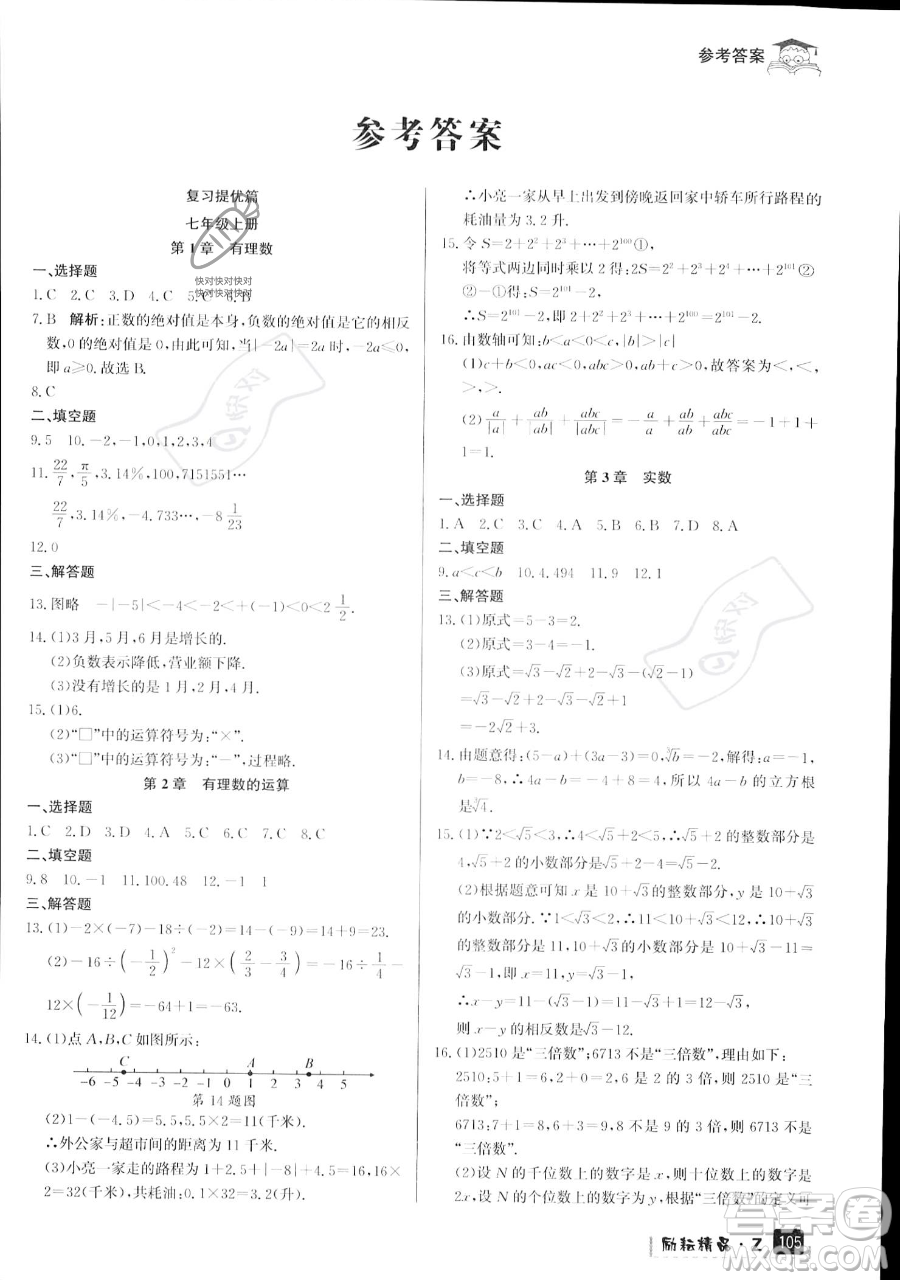 参考答案
参考答案
复习提优篇
七年级上册
第1章 有理数
一、选择题
1.C 2.C 3.D 4.D 5.C 6.B
快对快对快对快对
快对快对快对快对
7.B 解析:正数的绝对值是本身,负数的绝对值是它的相反
数,0的绝对值是0,当|-2a|=2a时,-2a≤0.
即a≥0.故选B.
8.C
二、填空题
9.5 10.-2,-1,0,1,2,3,4
11.22/7,π/5,3.14%,100,7151551…
22/7,3.14%,-4.733…,-8 1/23
12.0
三、解答题
13.图略 -|-5|<-4<-2<-(-1)<0<2 1/2.
14.(1)3月,5月,6月是增长的.
(2)负数表示降低,营业额下降.
(3)没有增长的是1月,2月,4月.
15.(1)6.
(2)“□”中的运算符号为:“×”.
(3)“□”中的运算符号为:“-”,过程略.
第2章 有理数的运算
一、选择题
1.C 2.D 3.D 4.C 5.B 6.D 7.B 8.C
二、填空题
9.8 10.-1 11.100.48 12.-1 1
三、解答题
13.(1)-2×(-7)-18÷(-2)=14-(-9)=14+9=23.
(2)-16÷(-1/2)²-12×(2/3-3/4)=-16÷1/4-
12×(-1/12)=-64+1=-63.
14.(1)点A,B,C如图所示:
C A B
-6 -5 -4 -3 -2 -1 0 1 2 3 4 5
第14题图
(2)1-(-4.5)=5.5,5.5×2=11(千米).
∴外公家与超市间的距离为11千米.
(3)小亮一家走的路程为4+12+11+5=16,16×
2=32(千米),共耗油:0.1×32=3.2(升).
∴小亮一家从早上出发到傍晚返回家中轿车所行路程的
耗油量为3.2升.
15.令S=2+2²+2³+…+2¹⁰⁰①
将等式两边同时乘以2得:2S=2²+2³+2⁴+…+2¹⁰¹②
②-①得:S=2¹⁰¹-2,
∴S=2¹⁰¹-2,即2+2²+2³+…+2¹⁰⁰=2¹⁰¹-2.
16.由数轴可知:b<a<0<c,|b|>|c|
(1)c+b<0,ac<0,abc>0,ab+c>0.故答案为<,<,
>,>.
(2)a/|a|+ab/|ab|+abc/|abc|=-a/a+ab/ab+abc/abc=-1+1+
1=1.
第3章 实数
一、选择题
1.A 2.C 3.C 4.C 5.B 6.A 7.D 8.A
二、填空题
9.a<c<b 10.4.494 11.9 12.1
三、解答题
13.(1)原式=5-3=2.
(2)原式=√3-√2+√3-√2-(√2-1)
=√3-√2+√3-√2-√2+1
=-2√2+√3.
14.由题意得:(5-a)+(3a-9)=0,∛b=-2,解得:a=2,
b=-8.∴2a-b=2×2-(-8)=12.
15.(1)∵2<√5<3,∴4<√5+2<5,∴√5+2的整数部分是
4,√5+2的小数部分是√5-2.
(2)根据题意可知x是10+√3的整数部分,y是10+√3
的小数部分.∵1<√3<2,∴11<10+√3<12,∴10+√3
的整数部分是11,10+√3的小数部分是10+√3-11=
√3-1,即x=11,y=√3-1,
∴x-y=11-(√3-1)=12-√3,
则x-y的相反数是√3-12.
16.(1)2510是“三倍数”;6713不是“三倍数”,理由如下:
2510:5+1=6,2+0=2,6是2的3倍,则2510是“三
倍数”;
6713:7+1=8,6+3=9,8不是9的3倍,则6713不是
“三倍数”.
(2)设N的千位数上的数字是x,则十位数上的数字是
2x,设N的个位数上的数字为y,根据“三倍数”的定义可
励耘精品·Z 105